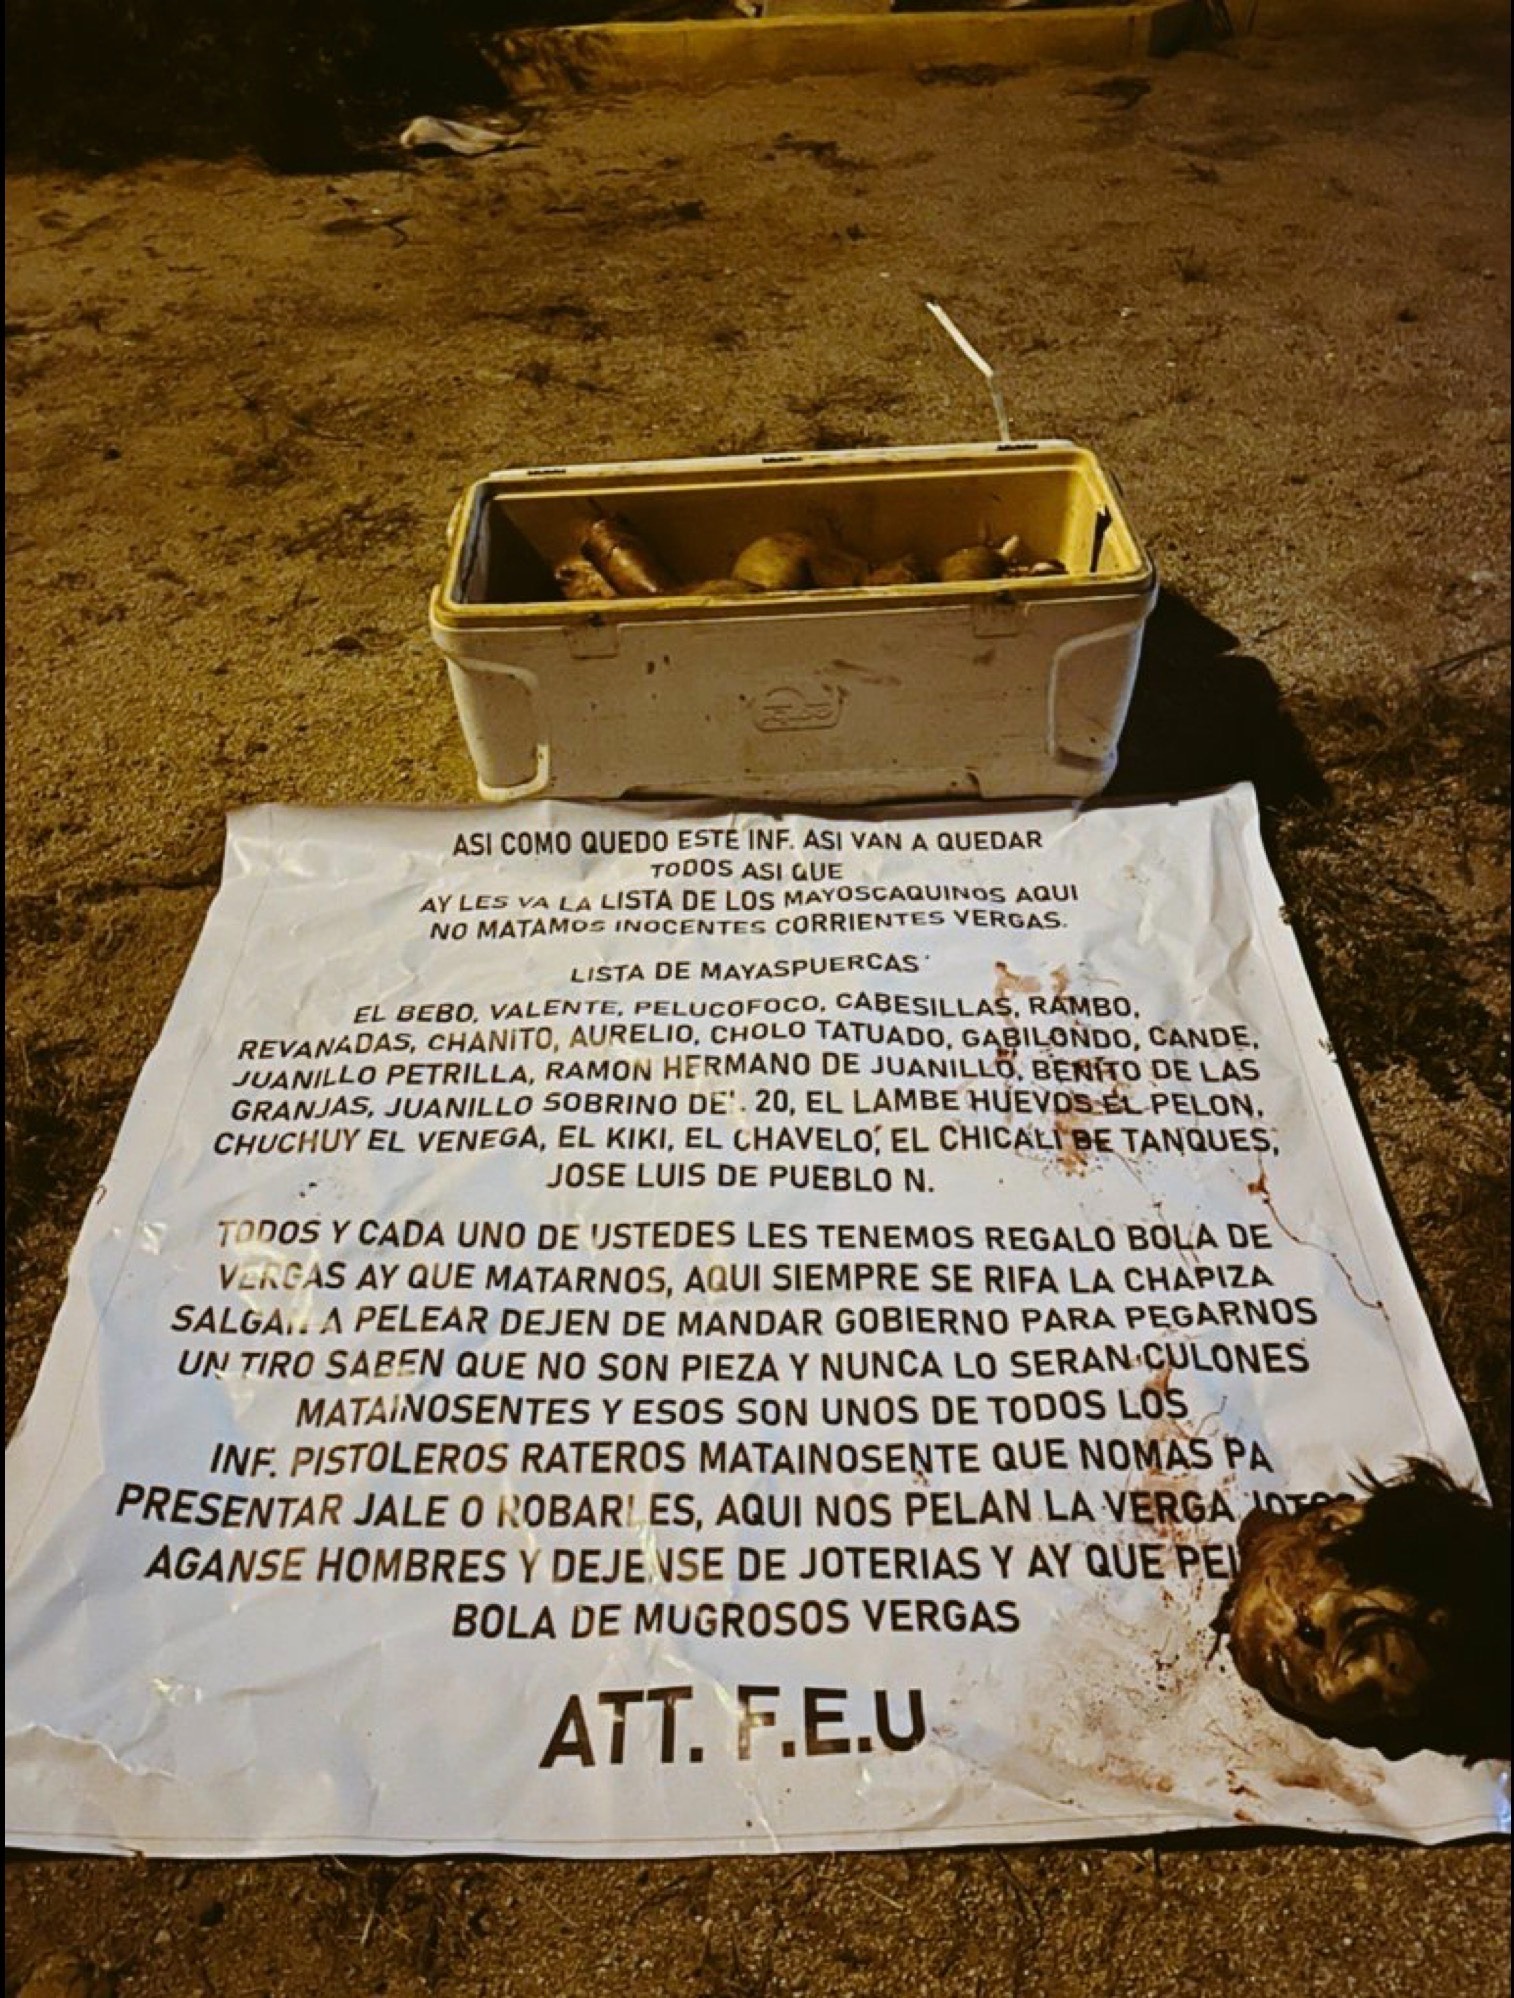 ASI COMO QUEDO ESTE INF. ASI VAN A QUEDAR
TODOS ASI QUE
AY LES VA LA LISTA DE LOS MAYOSCAQUINOS AQUI
NO MATAMOS INOCENTES CORRIENTES VERGAS.
LISTA DE MAYASPUERCAS
EL BEBO, VALENTE, PELUCOFOCO, CABESILLAS, RAMBO,
REVANADAS, CHANITO, AURELIO, CHOLO TATUADO, GABILONDO, CANDE,
JUANILLO PETRILLA, RAMON HERMANO DE JUANILLO, BENITO DE LAS
GRANJAS, JUANILLO SOBRINO DEL 20, EL LAMBE HUEVOS EL PELON,
CHUCHUY EL VENEGA, EL KIKI, EL CHAVELO, EL CHICALI DE TANQUES,
JOSE LUIS DE PUEBLO N.
TODOS Y CADA UNO DE USTEDES LES TENEMOS REGALO BOLA DE
VERGAS AY QUE MATARNOS, AQUI SIEMPRE SE RIFA LA CHAPIZA
SALGAN A PELEAR DEJEN DE MANDAR GOBIERNO PARA PEGARNOS
UN TIRO SABEN QUE NO SON PIEZA Y NUNCA LO SERAN CULONES
MATAINOSENTES Y ESOS SON UNOS DE TODOS LOS
INF. PISTOLEROS RATEROS MATAINOSENTE QUE NOMAS PA
PRESENTAR JALE O ROBARLES, AQUI NOS PELAN LA VERGA JOTOS
AGANSE HOMBRES Y DEJENSE DE JOTERIAS Y AY QUE
BOLA DE MUGROSOS VERGAS
ATT. F.E.U